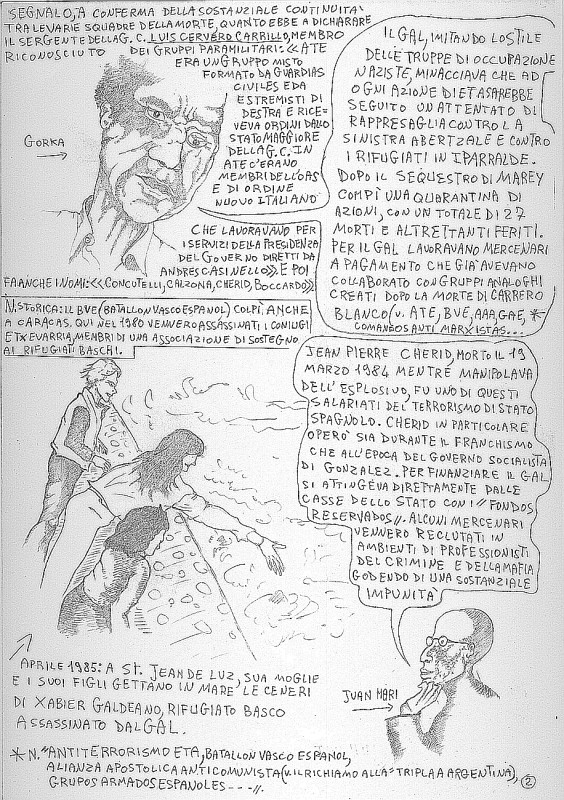 SEGNALO, A CONFERMA DELLA SOSTANZIALE CONTINUITA'
TRA LE VARIE SQUADRE DELLA MORTE, QUANTO EBBE A DICHIARARE
IL SERGENTE DELLA G.C. LUIS CERVERO CARRILLO, MEMBRO
RICONOSCIUTO DEI GRUPPI PARAMILITARI: «ATE
ERA UN GRUPPO MISTO
FORMATO DA GUARDIAS
CIVILES E DA
ESTREMISTI DI
DESTRA E RICE=
VEVA ORDINI DALLO
STATO MAGGIORE
DELLA G.C. IN
ATE C'ERANO
MEMBRI DELL'OAS
E DI ORDINE
NUOVO ITALIANO
CHE LAVORAVANO PER
I SERVIZI DELLA PRESIDENZA
DEL GOVERNO DIRETTI DA
ANDRES CASINELLO». E POI
FA ANCHE I NOMI: «CONCUTELLI, CALZONA, CHERID, BOCCARDO»
GORKA
IL GAL, IMITANDO LO STILE
DELLE TRUPPE DI OCCUPAZIONE
NAZISTE, MINACCIAVA CHE AD
OGNI AZIONE DI ETA SAREBBE
SEGUITO UN ATTENTATO DI
RAPPRESAGLIA CONTRO LA
SINISTRA ABERTZALE E CONTRO
I RIFUGIATI IN IPARRALDE.
DOPO IL SEQUESTRO DI MAREY
COMPÌ UNA QUARANTINA DI
AZIONI, CON UN TOTALE DI 27
MORTI E ALTRETTANTI FERITI.
PER IL GAL LAVORAVANO MERCENARI
A PAGAMENTO CHE GIA' AVEVANO
COLLABORATO CON GRUPPI ANALOGHI
CREATI DOPO LA MORTE DI CARRERO
BLANCO (V. ATE, BVE, AAA, GAE, *
COMANDOS ANTI MARXISTAS...
N. STORICA: IL BVE (BATALLON VASCO ESPAÑOL) COLPÌ, ANCHE
A CARACAS, QUI NEL 1980 VENNERO ASSASSINATI I CONIUGI
ETXEVARRIA, MEMBRI DI UNA ASSOCIAZIONE DI SOSTEGNO
AI RIFUGIATI BASCHI.
JEAN PIERRE CHERID, MORTO IL 19
MARZO 1984 MENTRE MANIPOLAVA
DELL'ESPLOSIVO, FU UNO DI QUESTI
SALARIATI DEL TERRORISMO DI STATO
SPAGNOLO. CHERID IN PARTICOLARE
OPERO' SIA DURANTE IL FRANCHISMO
CHE ALL'EPOCA DEL GOVERNO SOCIALISTA
DI GONZALEZ. PER FINANZIARE IL GAL
SI ATTINGEVA DIRETTAMENTE DALLE
CASSE DELLO STATO CON I "FONDOS
RESERVADOS". ALCUNI MERCENARI
VENNERO RECLUTATI IN
AMBIENTI DI PROFESSIONISTI
DEL CRIMINE E DELLA MAFIA
GODENDO DI UNA SOSTANZIALE
IMPUNITA'
JUAN MARI
APRILE 1985: A ST. JEAN DE LUZ, SUA MOGLIE
E I SUOI FIGLI GETTANO IN MARE LE CENERI
DI XABIER GALDEANO, RIFUGIATO BASCO
ASSASSINATO DAL GAL.
* N. "ANTITERRORISMO ETA, BATALLON VASCO ESPAÑOL,
ALIANZA APOSTOLICA ANTICOMUNISTA (V. IL RICHIAMO ALLA "TRIPLA A ARGENTINA),
GRUPOS ARMADOS ESPAÑOLES - - - ".
2